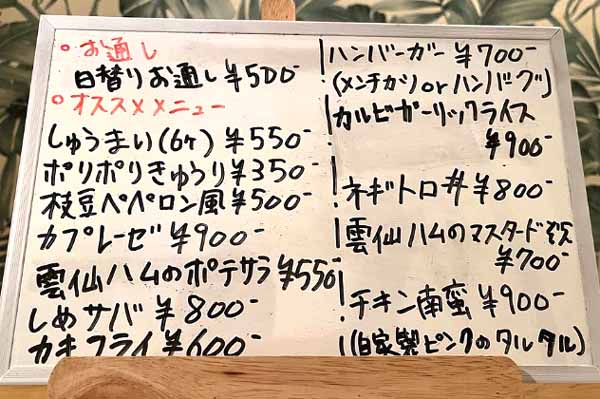 ○ お通し
日替りお通し ¥500-
○ オススメメニュー
しゅうまい(6ヶ) ¥550-
ポリポリきゅうり ¥350-
枝豆ペペロン風 ¥500-
カプレーゼ ¥900-
雲仙ハムのポテサラ ¥550-
しめサバ ¥800-
カキフライ ¥600-
ハンバーガー ¥700-
(メンチカツ or ハンバーグ)
カルビガーリックライス
¥900-
ネギトロ丼 ¥800-
雲仙ハムのマスタード
¥700-
チキン南蛮 ¥900-
(自家製ピンクのタルタル)